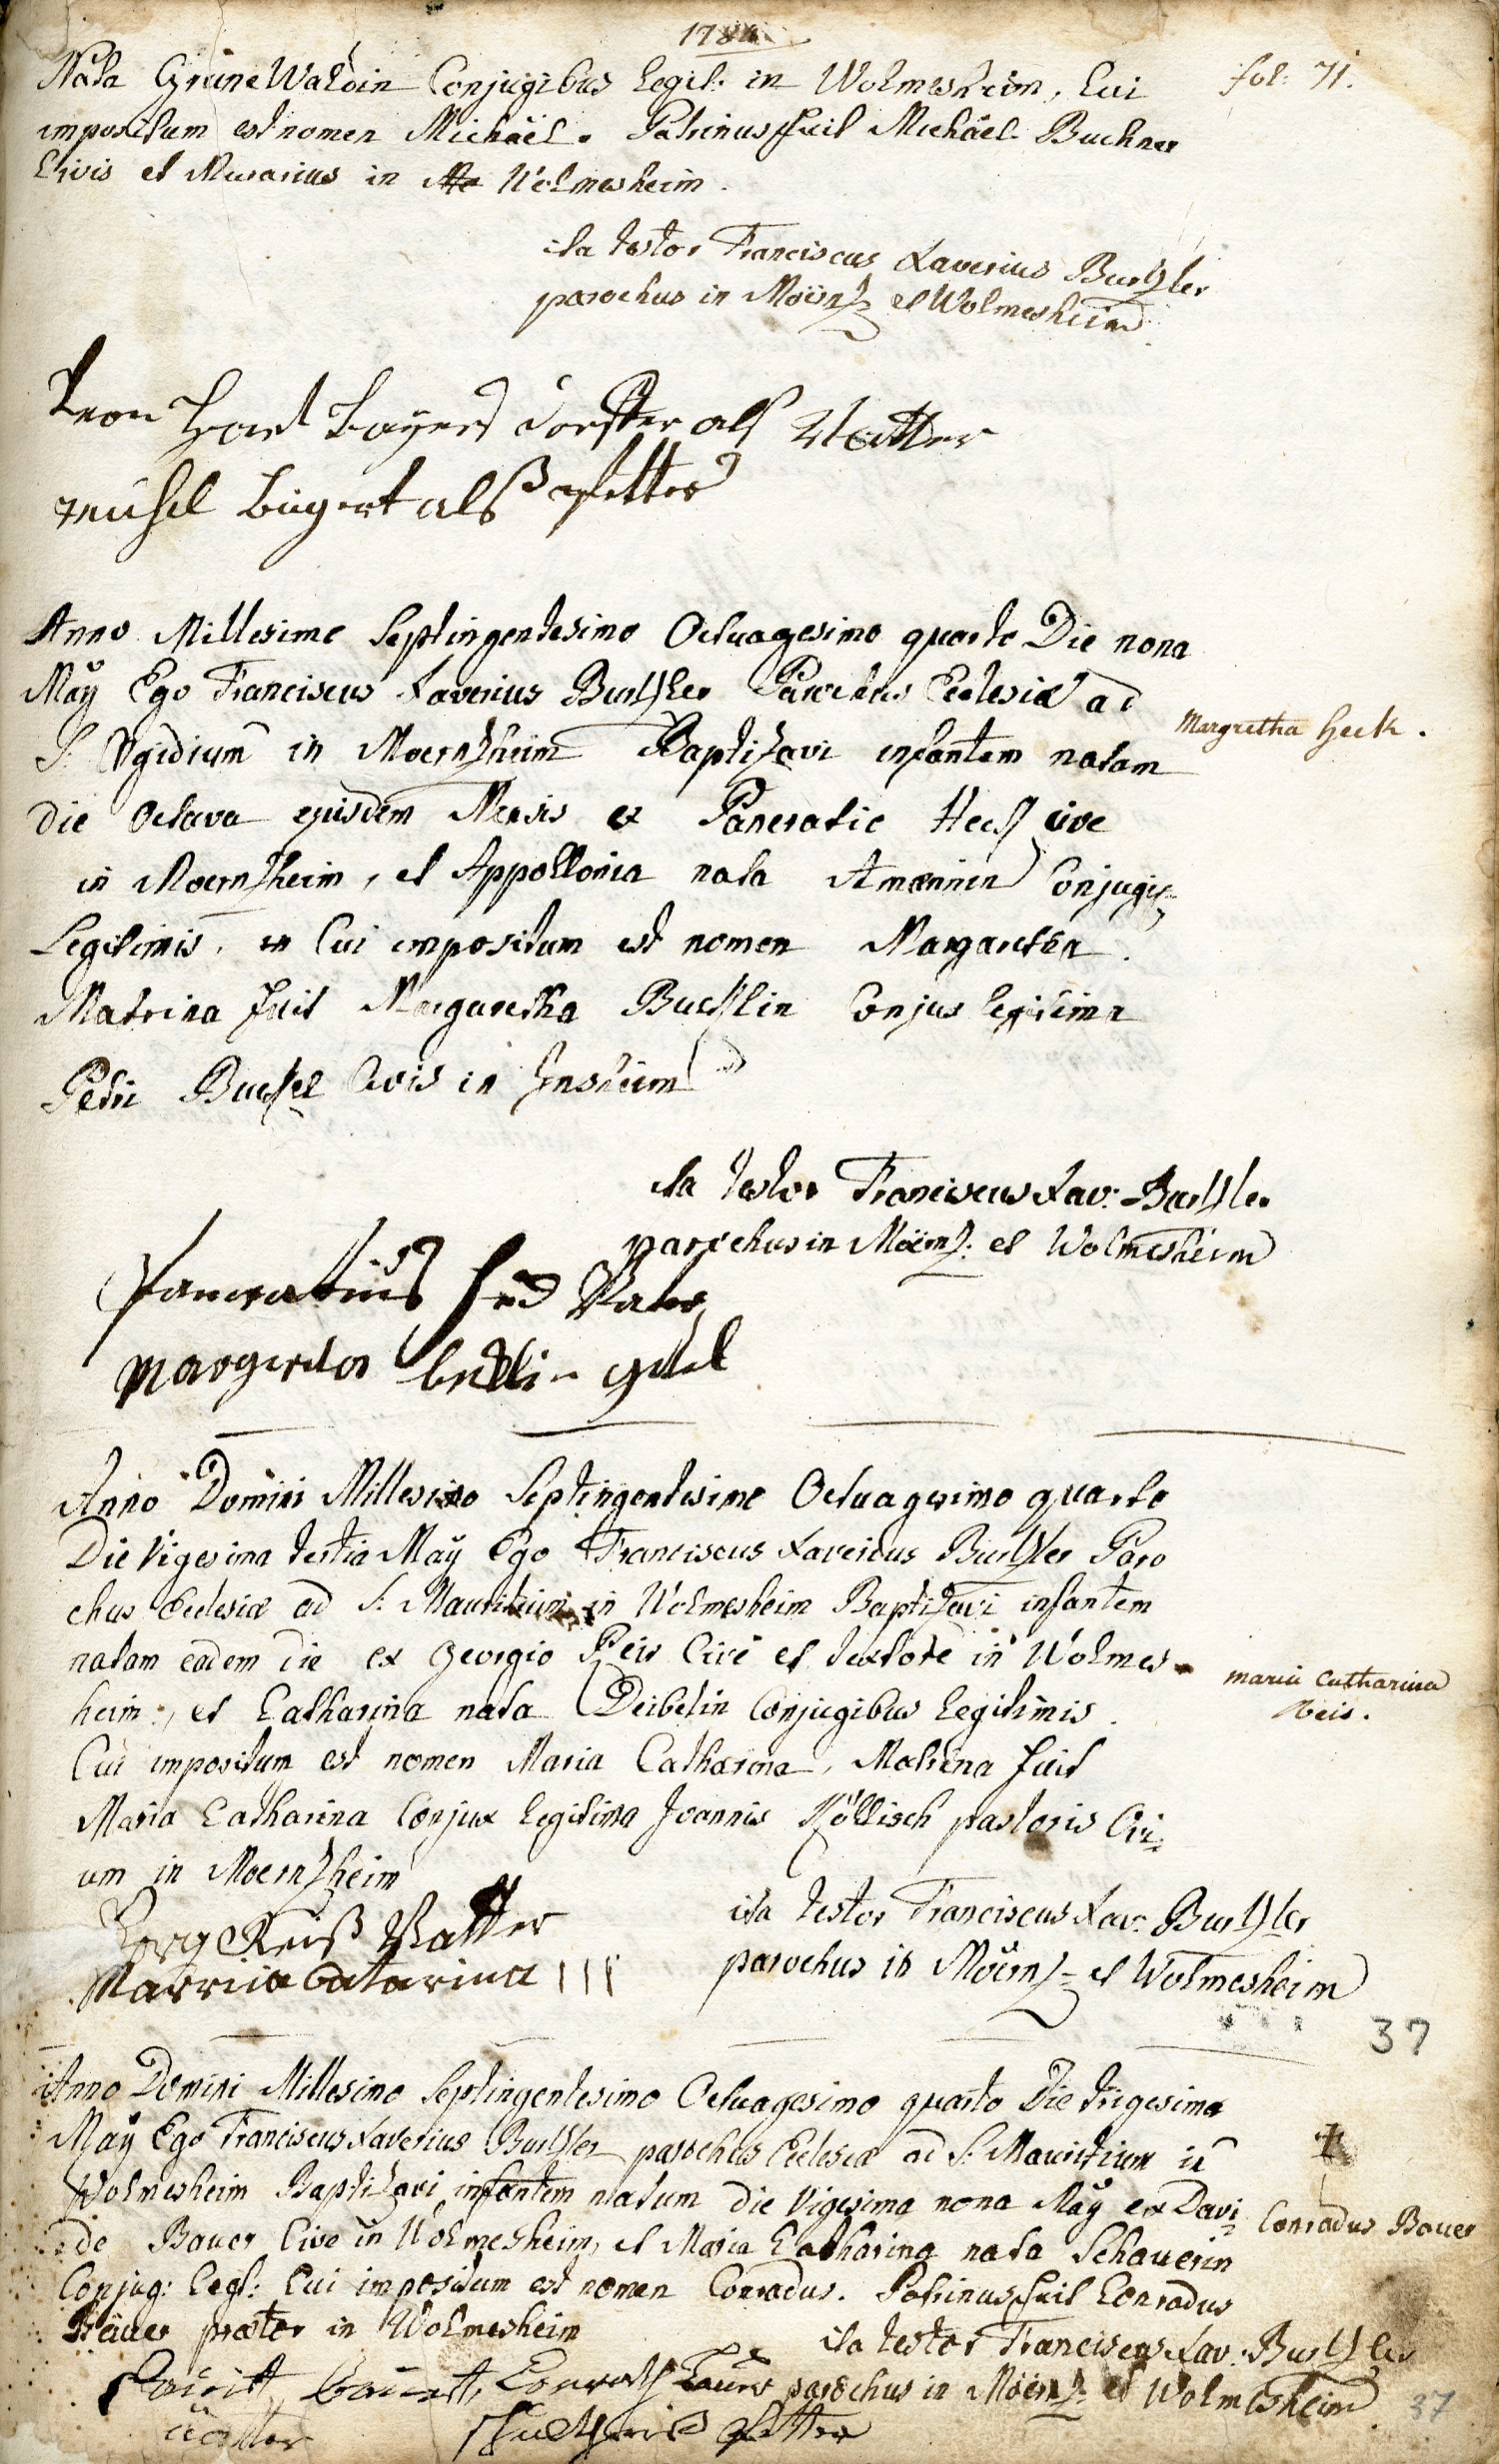 1784
fol: 71.
Nata GrüneWaldin Conjugibus legit: in Wolmesheim, Cui
impositum est nomen Michäel. Patrinus fuit Michäel Buchner
Civis et Murarius in Wolmesheim.
ita testor Franciscus Xaverius Burtzler
parochus in Möünz et Wolmesheim
als Vatter
als petter
Anno Millesimo Septingentesimo Octuagesimo quarto Die nona
Maÿ Ego Franciscus Xaverius Burtzler Parochus Ecclesiæ ad
S. Ægidium in Moernzheim Baptizavi infantem natam
Margretha Heck.
die Octava ejusdem Mensis ex Pancratio Heck cive
in Moernzheim, et Appollonia nata Amennin Conjugi:
Legitimis, Cui impositum est nomen Margaretha.
Matrina fuit Margaretha Bucklin Conjux legitima
Petri Buckel Civis in Insheim
ita testor Franciscus Xav: Burtzler
parochus in Möernz: et Wolmesheim
Pancratius Heck Vater
Margreta gettel
Anno Domini Millesimo Septingentesimo Octuagesimo quarto
Die Vigesima tertia Maÿ Ego Franciscus Xaverius Burtzler Paro
chus Ecclesiæ ad S. Mauritium in Wolmesheim Baptizavi infantem
natam eadem die ex Georgio Reis Cive et textore in Wolmes
heim, et Catharina nata Deibelin Conjugibus legitimis.
maria Catharina
Reis.
Cui impositum est nomen Maria Catharina, Matrina fuit
Maria Catharina Conjux legitima Joannis Köllisch pastoris Civi:
um in Moernzheim
Jorg Reiß Vatter
Marria Catarina III
ita testor Franciscus Xav: Burtzler
parochus in Möernz: et Wolmesheim
37
Anno Domini Millesimo Septingentesimo Octuagesimo quarto Die trigesima
Maÿ Ego Franciscus Xaverius Burtzler parochus Ecclesiæ ad S. Mauritium in
Wolmesheim Baptizavi infantem natum die Vigesima nona Maÿ ex Davi:
de Bauer Cive in Wolmesheim, et Maria Catharina nata Schauerin
Conradus Bauer
Conjug: legt: Cui impositum est nomen Conradus. Patrinus fuit Conradus
Bauer prætor in Wolmesheim
ita testor Franciscus Xav: Burtzler
parochus in Möernz: et Wolmesheim
vatter
petter
37